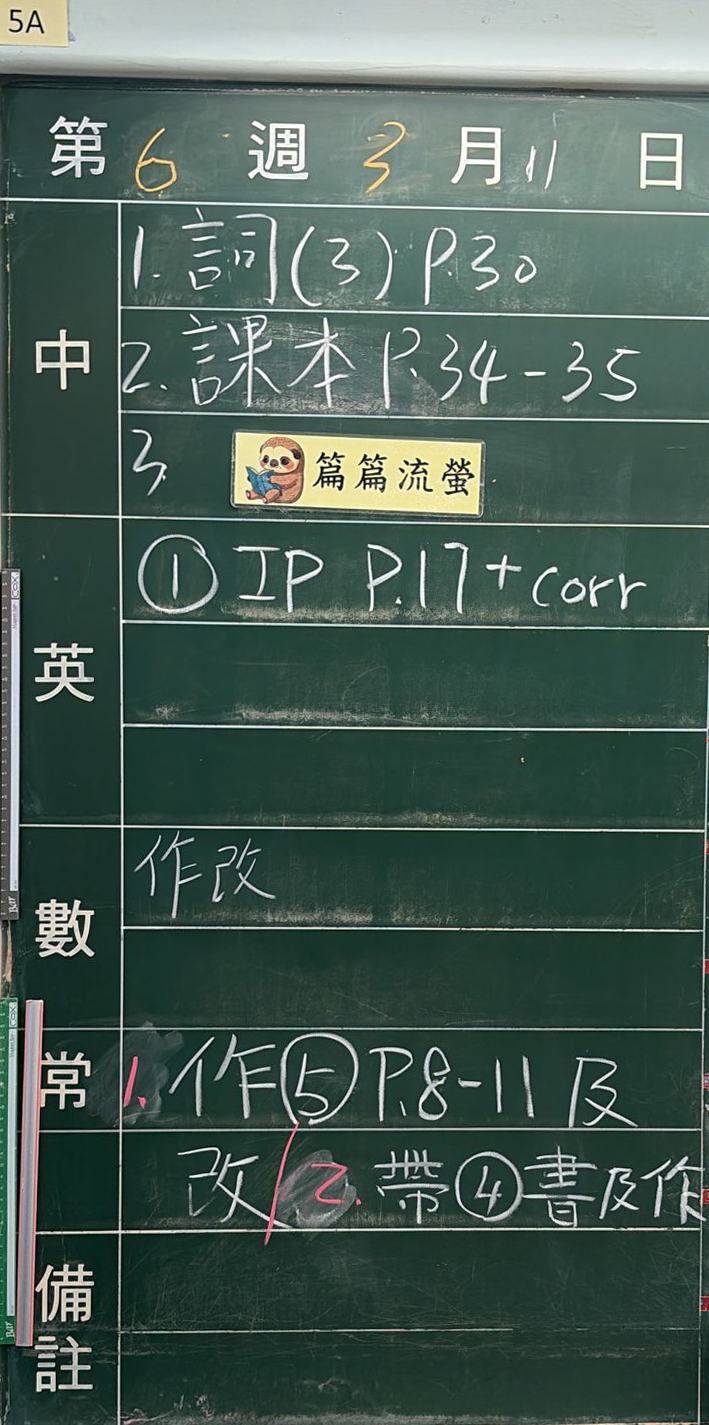 5A
第6週3月11日
中
1. 詞(3) P.30
2. 課本 P.34-35
3. 篇篇流螢
英
① IP P.17 + corr
數
作改
常
1. 作⑤ P.8-11 及
改/2. 帶④書及作
備註